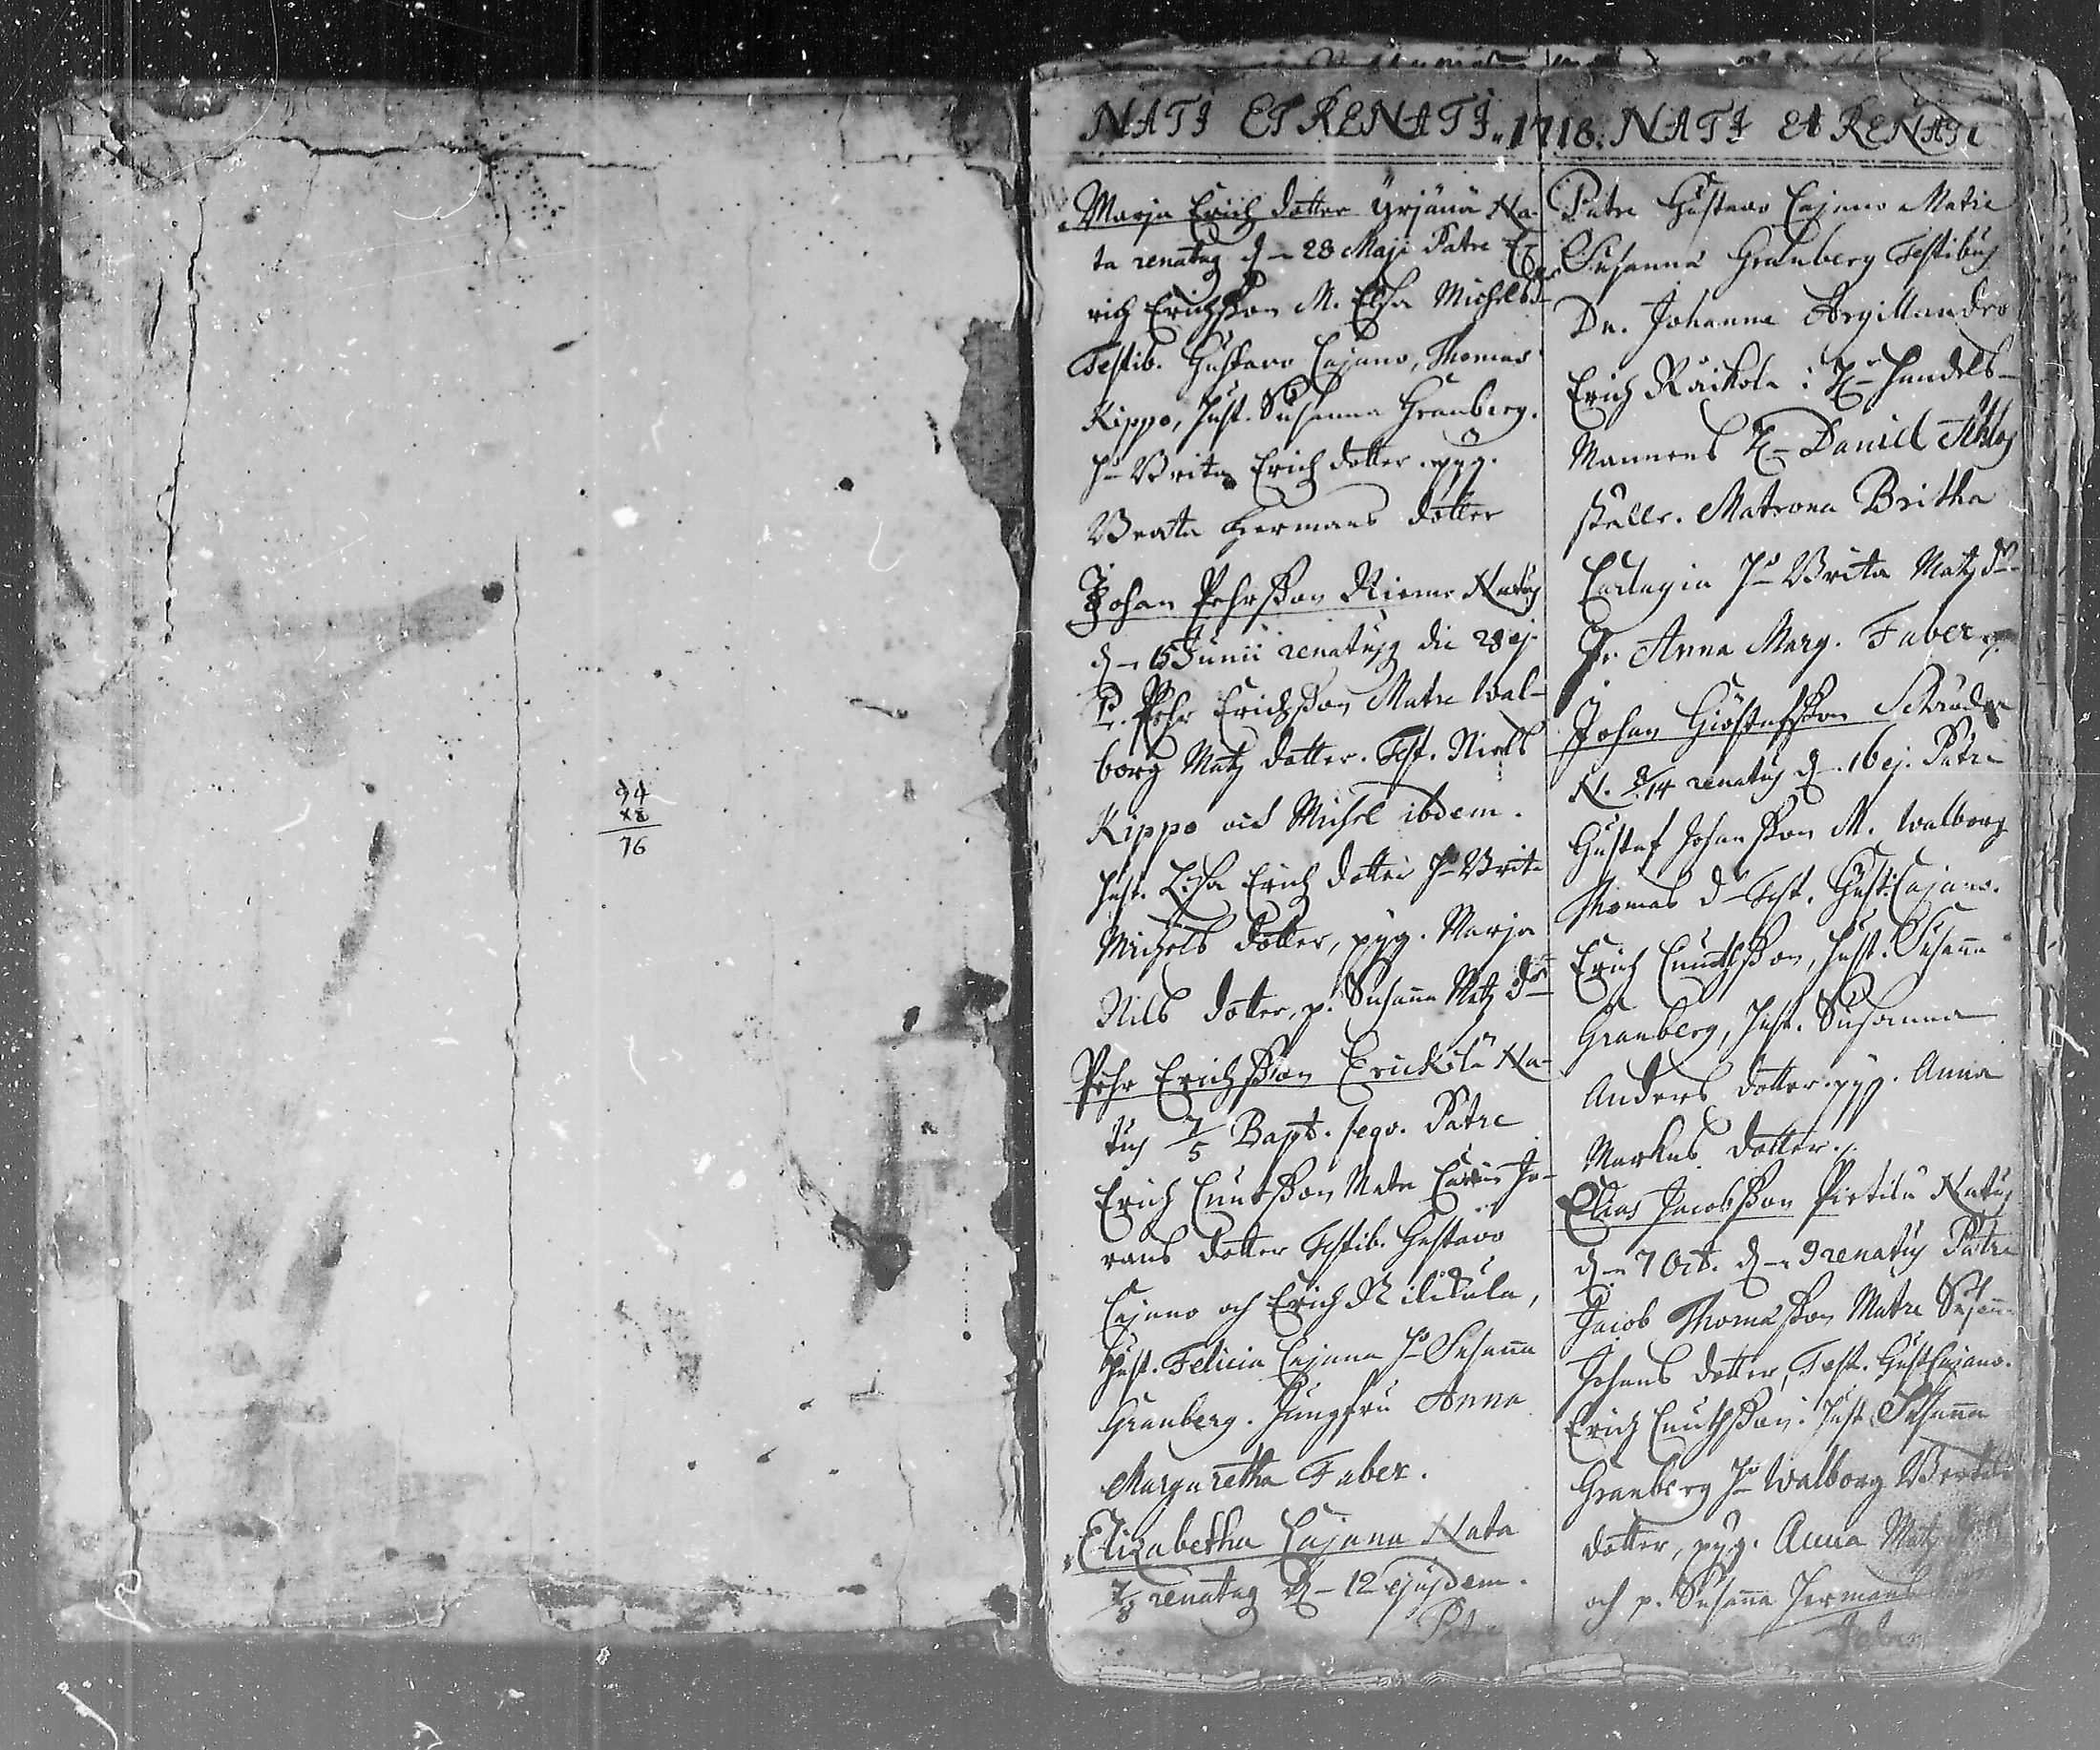 94
x8
76
NATI ET RENATI. 1718. NATI ET RENATI
Marja Erich dotter Yrjänä Na-
ta renatag d - 28 Maji Patre E-
rich Erichsson M. Elsa Michelsdr
Testib. Gustavo Cajano, Thomas
Kippo, Hust. Susanna Granberg.
H- Brita Erich dotter. pyg.
Beata Hermans dotter
Johan Pehrsson Riem Natus
d - 15 Junii renatusq die 28 ej.
P. Pehr Erichsson Matre Wal-
borg Matz dotter. Test. Niels
Kippo och Michel ibdem.
Hust. Lisa Erich dotter H- Brita
Michels dotter, pyg. Marja
Nils dotter, p. Susanna Matz dr
Pehr Erichsson Erickilä Na-
tus 7/5 Bapt. seqv. Patre
Erich Cnutsson Matre Carin Jö-
rans dotter Testib. Gustavo
Cajano och Erich
Hust. Felicia Cajana H- Susanna
Granberg. Jungfru Anna
Margaretha Faber.
Elizabetha Cajana Nata
7/8 renatag d - 12 ejusdem.
Patre
Patre Gustavo Cajano Matre
Susanna Granberg Testibus
Dn. Johanne Argillandro
Erich Räikölä: H- Handels-
Mannens H- Daniel
Matrona Britha
H- Brita Matzdr
Jr. Anna Marg. Faber
Johan Giöstafsson Schröder
N. 8/14 renatus d. 16 ej. Patre
Gustaf Johansson M. Walborg
Thomas dr Test. Gust. Cajano.
Erich Cnuthsson, Hust. Susanna
Granberg, Hust. Susanna
Anders dotter. pyg. Anna
Markus dotter.
Elias Jacobsson Pirtilä Natus
d - 7 Oct. d - 9 renatus Patre
Jacob Thomasson Matre Susanna
Johans dotter, Test. Gust Cajano.
Erich Cnuthsson: Hust. Susanna
Granberg H- Walborg Bertils
dotter, pyg. Anna Matz
och p. Susanna Hermans